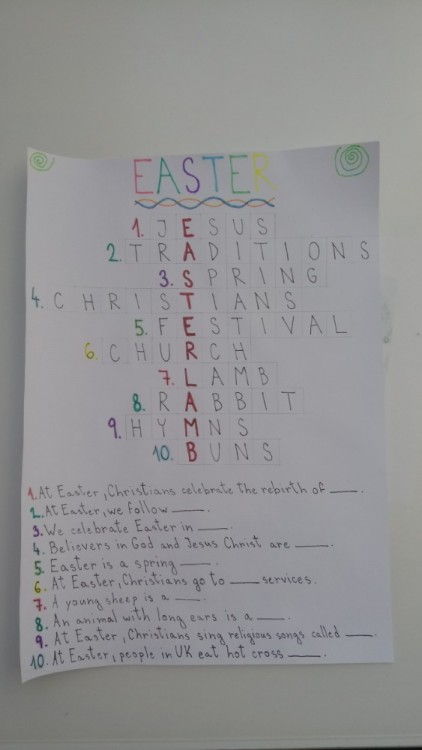 EASTER
1. JESUS
2. TRADITIONS
3. SPRING
4. CHRISTIANS
5. FESTIVAL
6. CHURCH
7. LAMB
8. RABBIT
9. HYMNS
10. BUNS
1. At Easter, Christians celebrate the rebirth of ____.
2. At Easter, we follow ____.
3. We celebrate Easter in ____.
4. Believers in God and Jesus Christ are ____.
5. Easter is a spring ____.
6. At Easter, Christians go to ____ services.
7. A young sheep is a ____.
8. An animal with long ears is a ____.
9. At Easter, Christians sing religious songs called ____.
10. At Easter, people in UK eat hot cross ____.